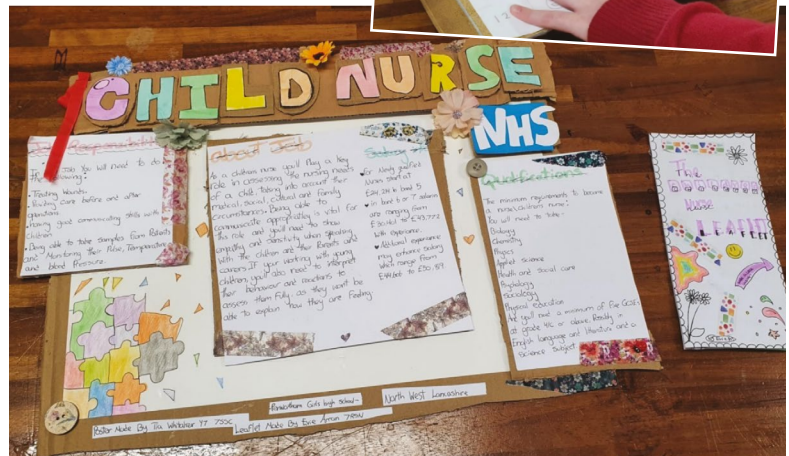 CHILD NURSE
NHS
Job Responsibilities
you will need to do
the following:
• Treating wounds.
• Providing care before and after
operations.
• having good communicating skills with
children
• Being able to take samples from Patients
and Monitoring their Pulse, Temperature
and blood Pressure.
about Job
As a childrens nurse you'll play a key
role in assessing the nursing needs
of a child. Taking into account their
medical, social, cultural and family
circumstances. Being able to
communicate appropriately is vital for
this role and you'll need to show
empathy and sensitivity when speaking
with the children and their Parents and
carers. If your working with young
children, you'll also need to interpret
their behaviour and reactions to
assess them fully, as they won't be
able to explain how they are finding
Salary
• For newly qualified
nurses start at
in band 5
• In band 6 or 7 salaries
are ranging from
to
with experience.
• Additional experience
may enhance salary
which range from
to
Qualifications
The minimum requirements to become
a nurse/childrens nurse:
You will need to take:
Biology
Chemistry
Physics
Applied science
Health and social care
Psychology
Sociology
Physical education
And you'll need a minimum of five GCSEs
at grade 4/c or above. Possibly in
English language and literature and a
Science subject.
The
Nurse
LEAFLET
Poster Made By Tia Whitaker Y7
Leaflet Made By Evie
Girls high school-
North West Lancashire
12